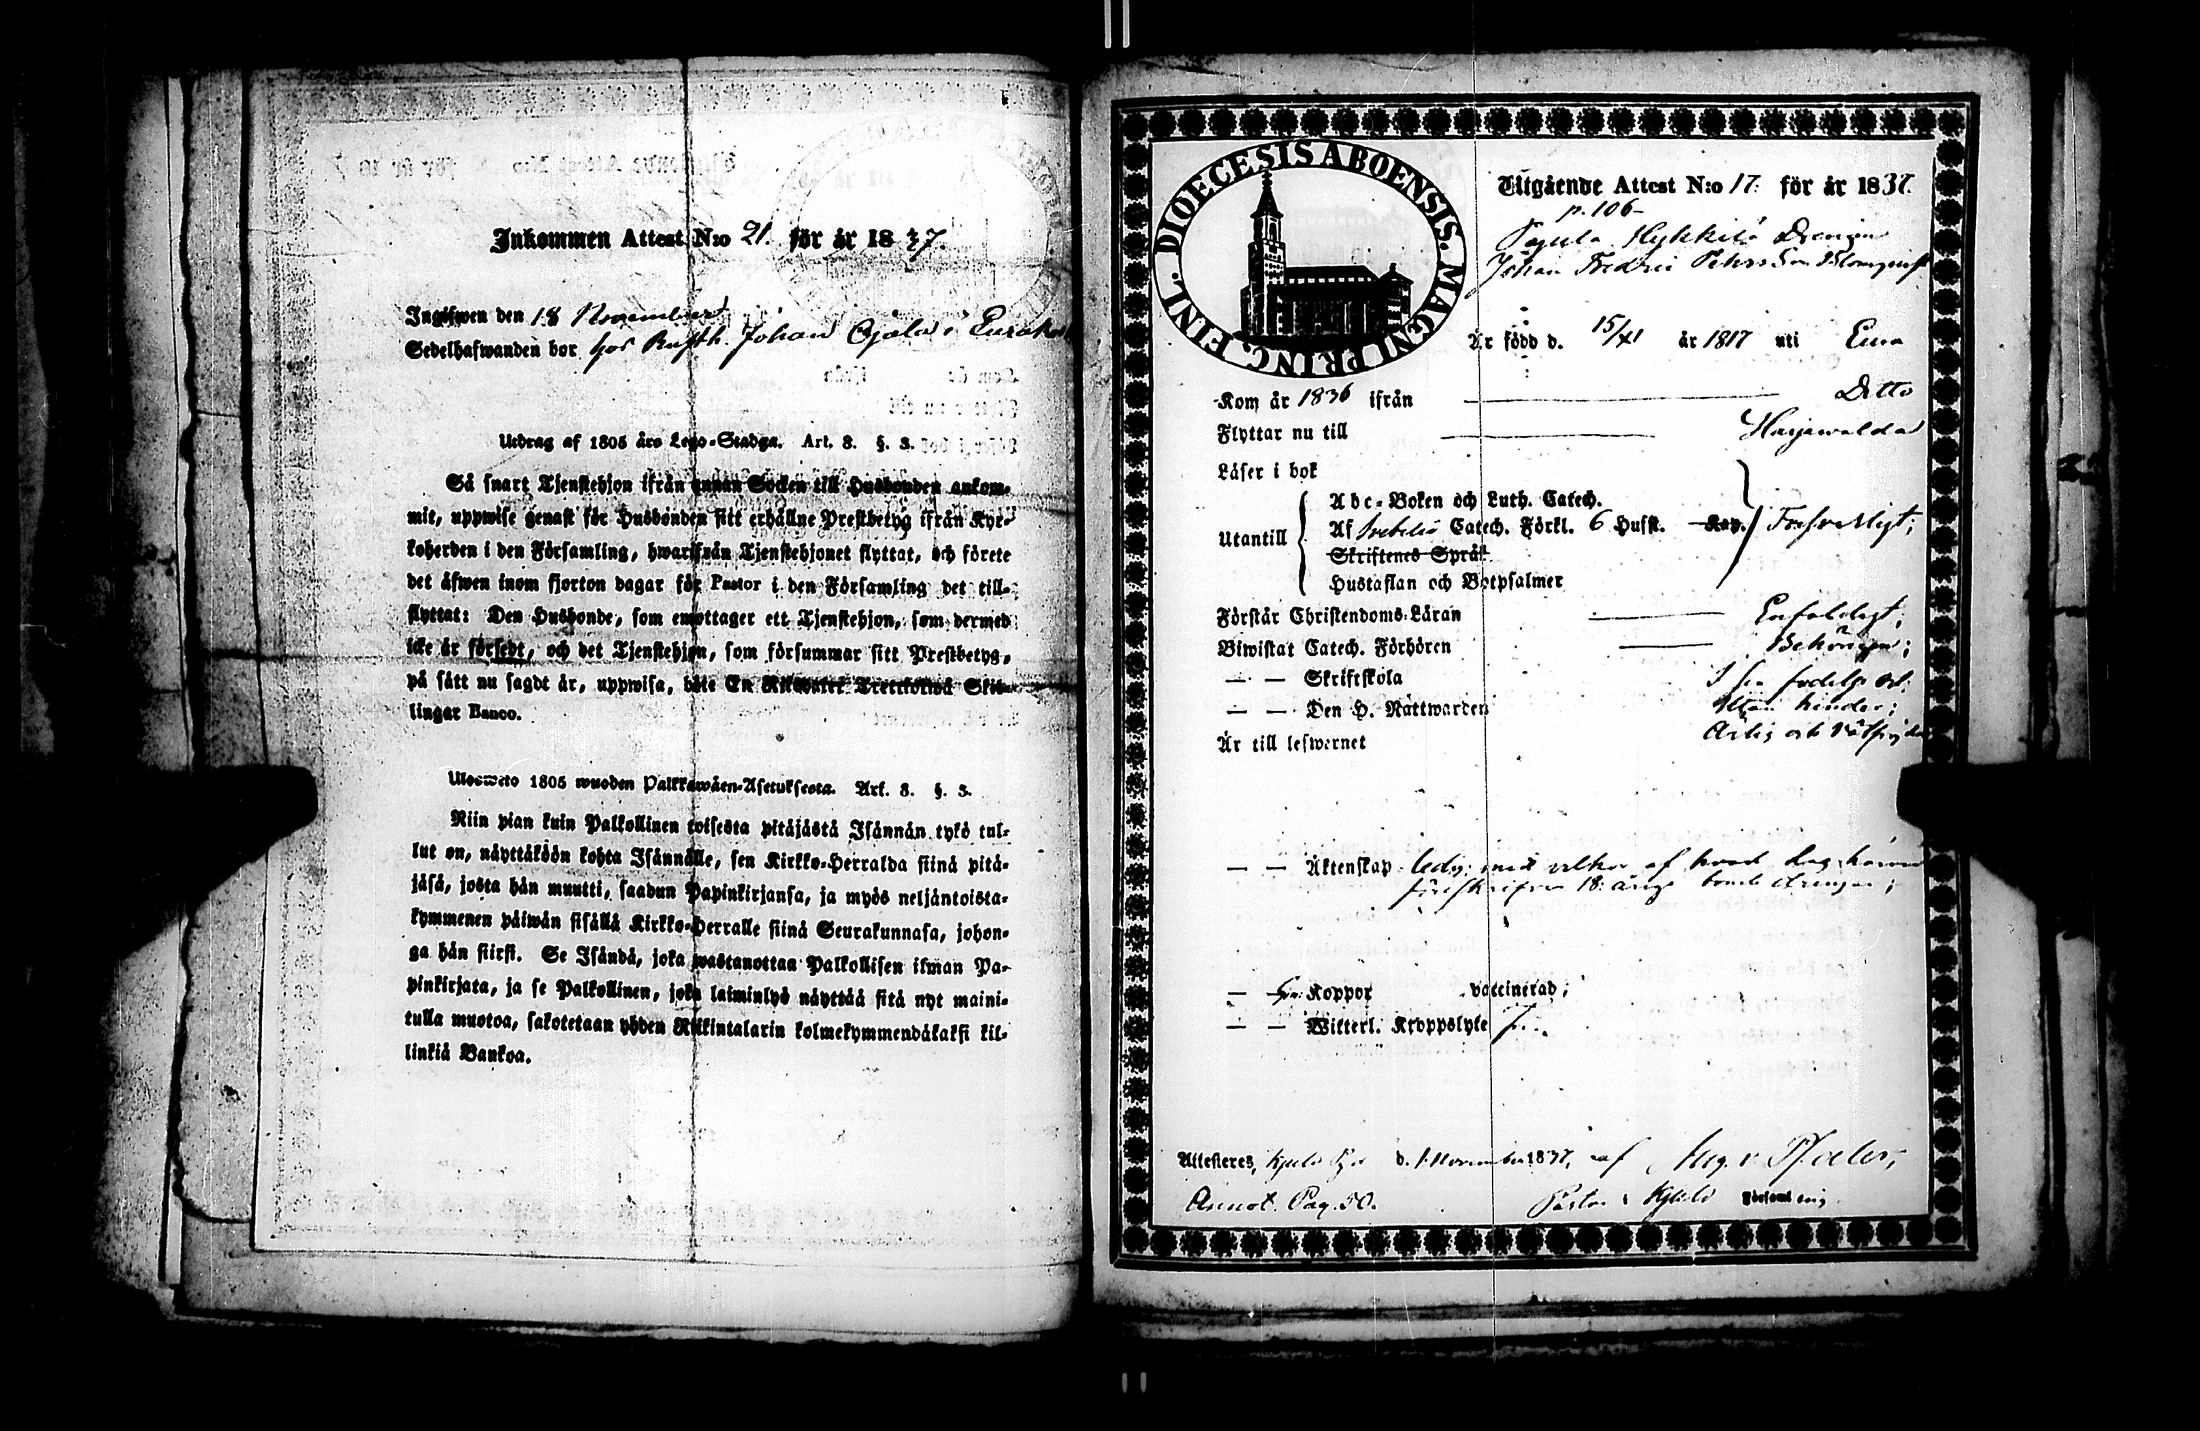 Inkommen Attest N:o 21. för år 1837.
Ingifwen den 18 November
Sedelhafwanden bor hos Rusth. Johan Ojala i Eurakos
Utdrag af 1805 års Lego-Stadga. Art. 8. §. 3.
Så snart Tjenstehjon ifrån annan Socken till Husbonden ankom-
mit, uppwise genast för Husbonden sitt erhållne Prestbetyg ifrån Kyr-
koherden i den Församling, hwarifrån Tjenstehjonet flyttat, och förete
det äfwen inom fjorton dagar för Pastor i den Församling det till-
flyttat: Den Husbonde, som emottager ett Tjenstehjon, som dermed
icke är försedt, och det Tjenstehjon, som försummar sitt Prestbetyg,
på sätt nu sagdt är, uppwisa, böte En Riksdaler Trettiotwå Skil-
lingar Banco.
Ulosweto 1805 wuoden Palkkawäen-Asetuksesta. Art. 8. §. 3.
Niin pian kuin Palkollinen toisesta pitäjästä Isännän tykö tul-
lut on, näyttäköön kohta Isännälle, sen Kirkko-Herralda siinä pitä-
jäsä, josta hän muutti, saadun Papinkirjansa, ja myös neljäntoista-
kymmenen päiwän sisällä Kirkko-Herralle siinä Seurakunnasa, johon-
ga hän siirsi. Se Isändä, joka wastanottaa Palkollisen ilman Pa-
pinkirjata, ja se Palkollinen, joka laiminlyö näyttää sitä nyt maini-
tulla muotoa, sakotetaan yhden Rikintalarin kolmekymmendäkaksi kil-
linkiä Bankoa.
DIOECESIS ABOENSIS. MAGNI PRINC. FINL.
Utgående Attest N:o 17. för år 1837.
p. 106-
Hykkilä Drengen
Johan Fredric Pehrsson Blomqvist
Är född d. 15/11 år 1817 uti Eura
Kom år 1836 ifrån Ditto
Flyttar nu till Harjawalda
Läser i bok
Utantill
Abc-Boken och Luth. Catech.
Af Svebelii Catech. Förkl. 6 Hufst. Kap. Försvarligt;
Skriftenes Språk
Hustaflan och Botpsalmer
Förstår Christendoms-Läran Enfaldigt;
Biwistat Catech. Förhören Behörigen;
— — Skriftskola I sin
— — Den H. Nattwarden Utan hinder;
Är till lefwernet Ärlig och
— — Äktenskap ledig med vilkor af hvad Lag härom
föreskrifver 18 årige bonde drengar;
— — Koppor vaccinerad;
— — Witterl. Kroppslyte
Attesteras, Kjulo d. 1 November 1837, af Aug. v. Pfaler;
Annot. Pag. 50. Pastor i Kjulo Församling